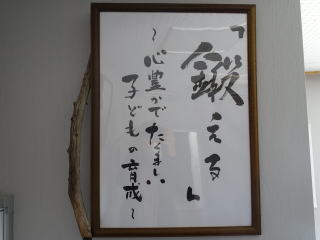 「鍛える」
～心豊かでたくましい
子どもの育成～